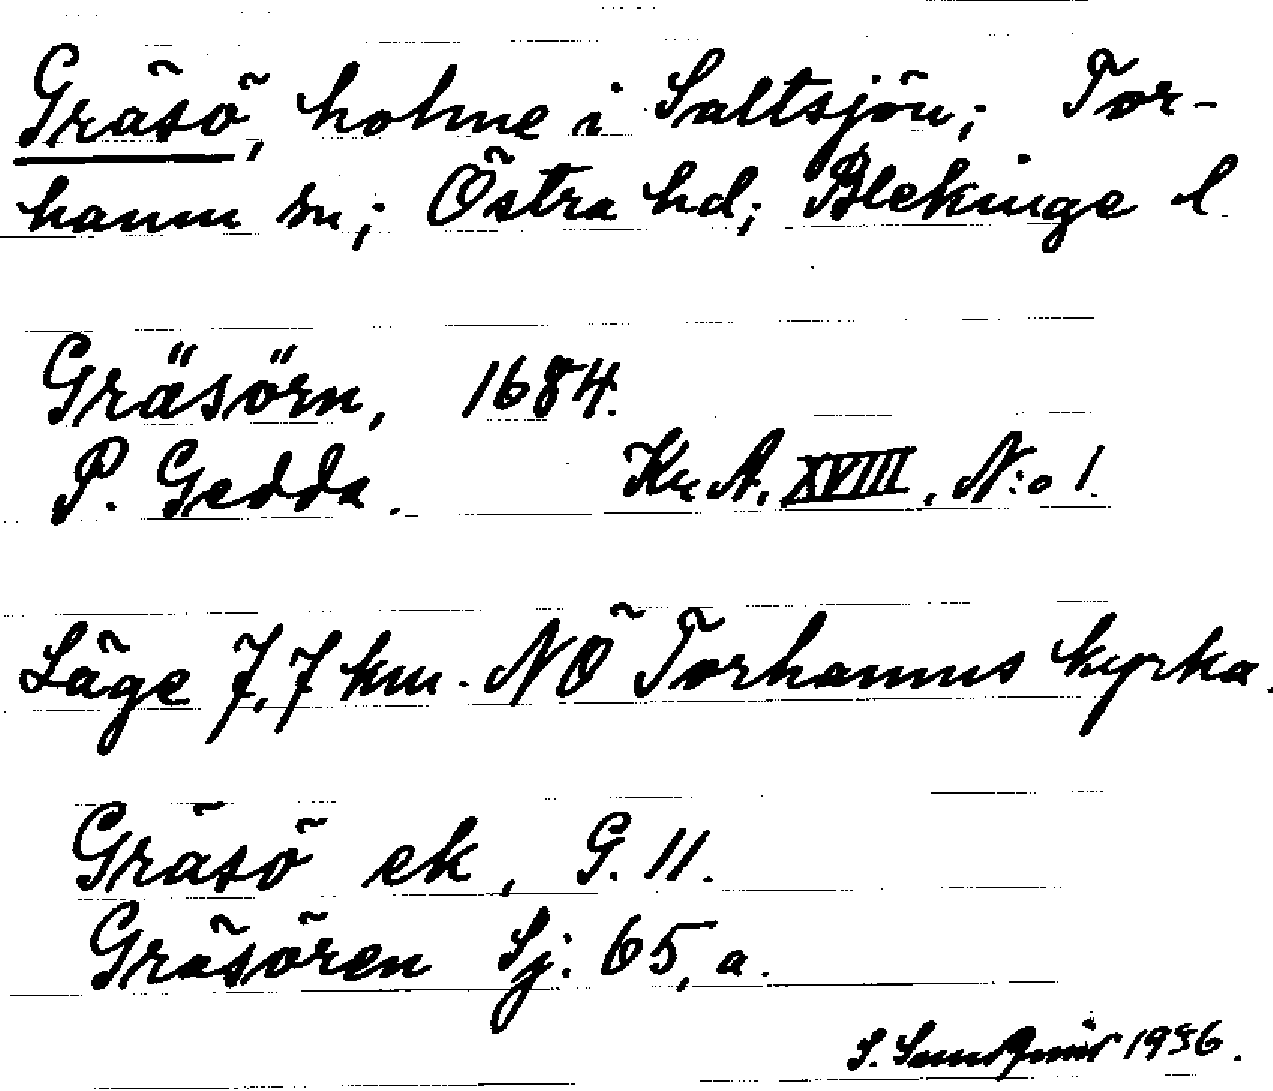 Gräsö, holme i Saltsjön; Tor-
hamn sn; Östra hd; Blekinge l.
Gräsörn, 1684.
P. Gedda. Kr. A. XVIII, N:o 1.
Läge 7,7 km. NÖ Torhamns kyrka.
Gräsö ek, G. 11.
Gräsören Sj: 65, a.
S. 1936.